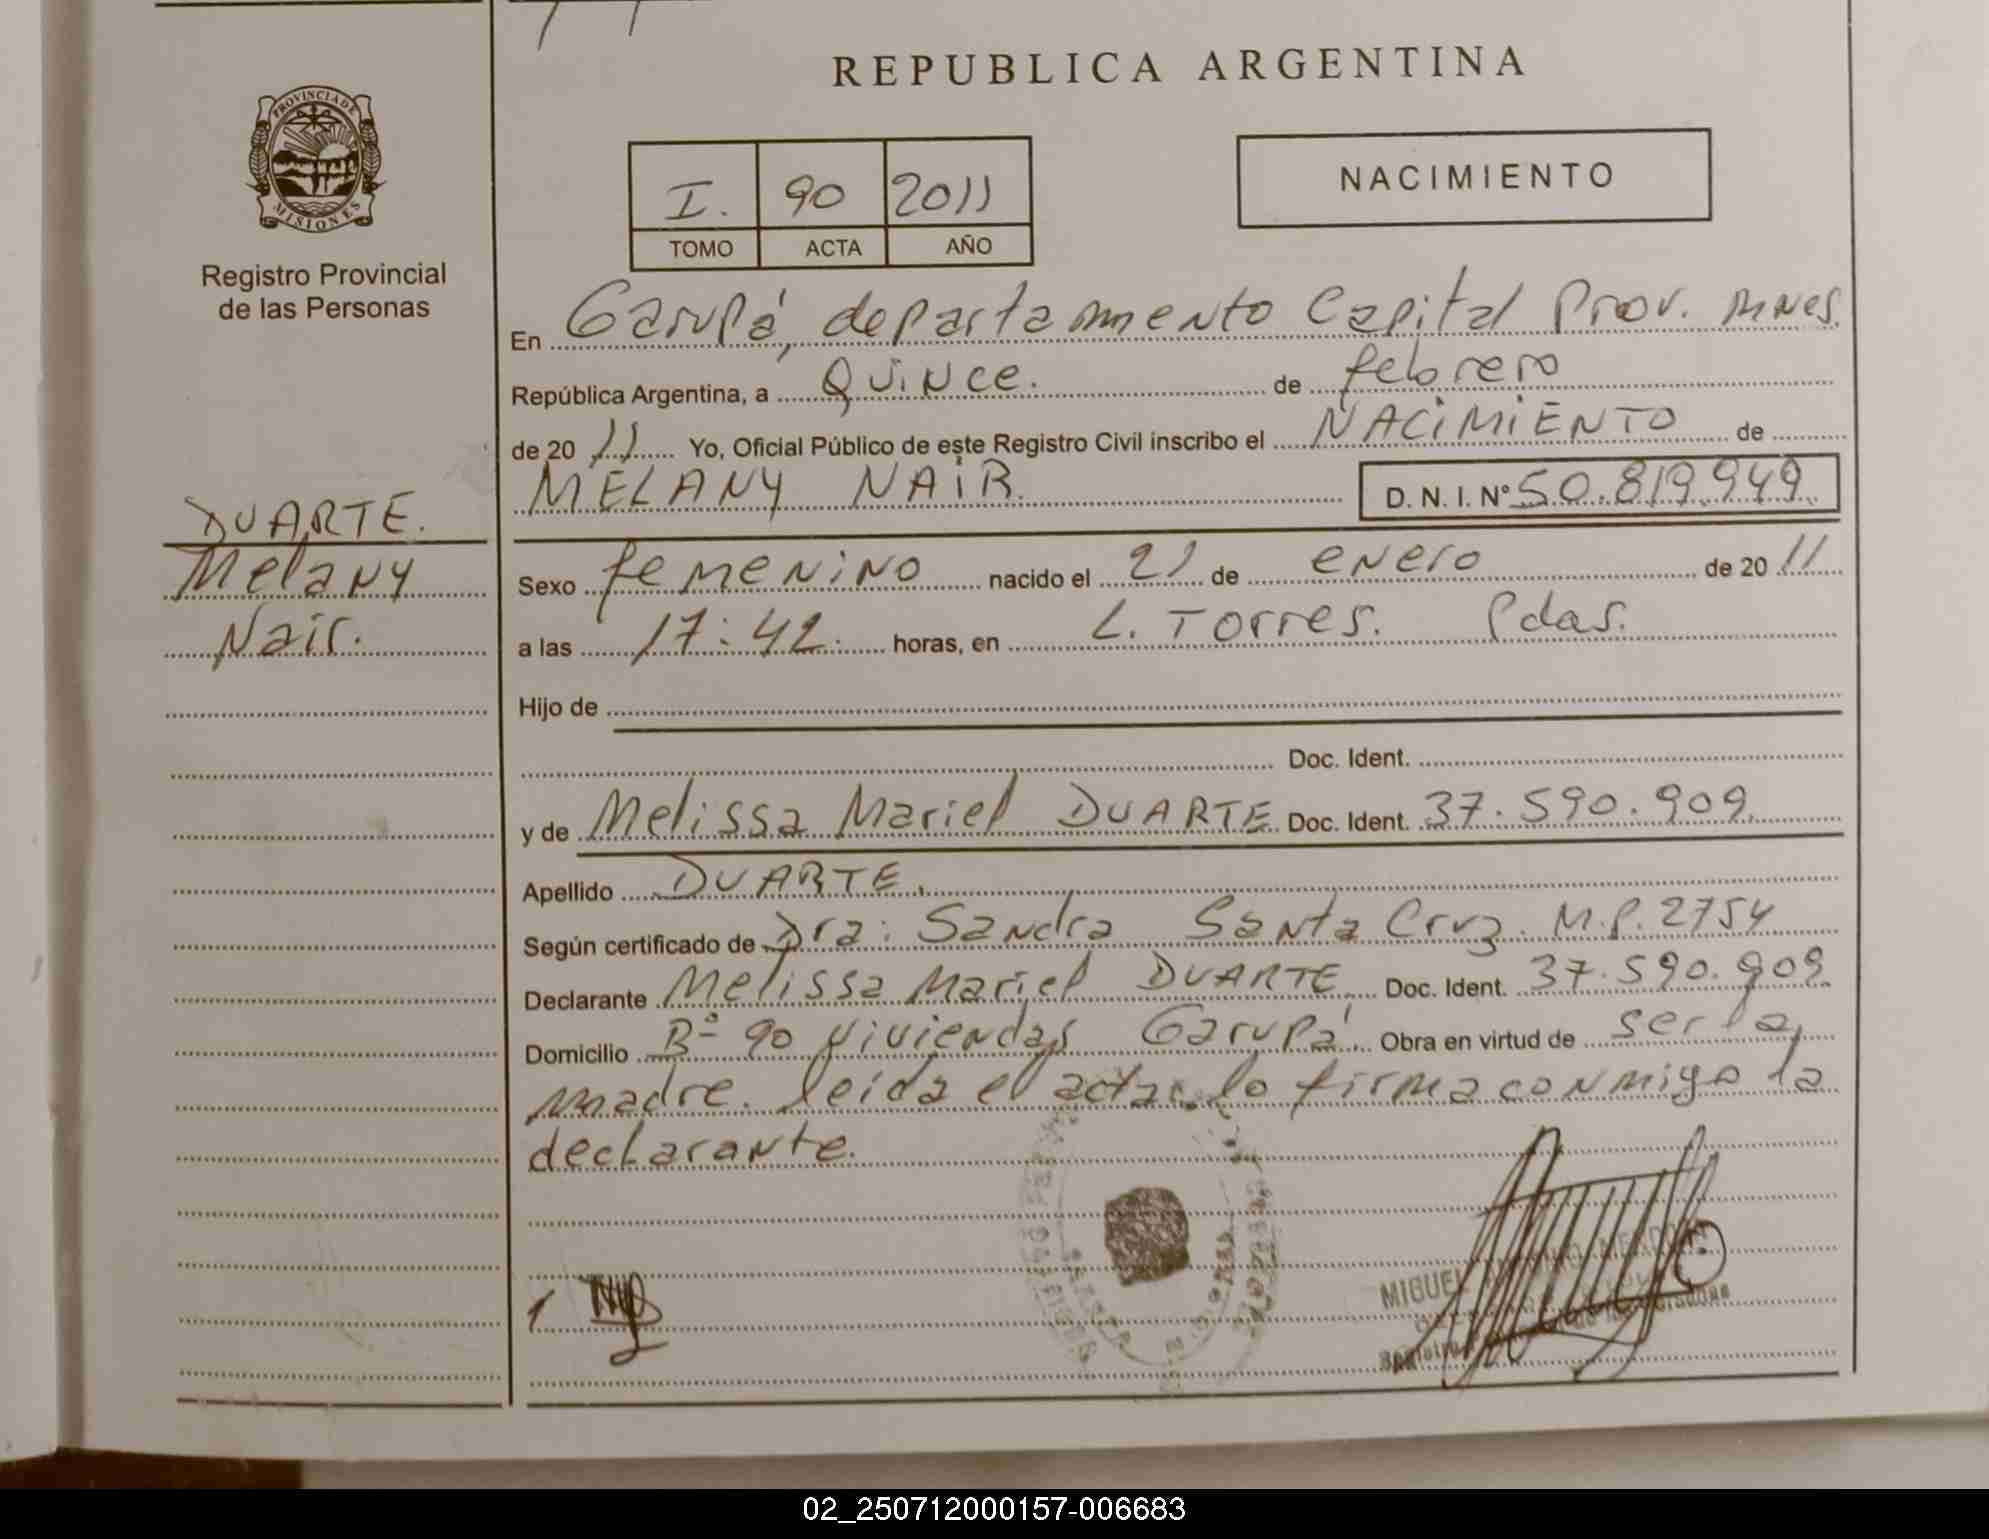 REPUBLICA ARGENTINA
PROVINCIA DE
MISIONES
Registro Provincial
de las Personas
I. 90 2011
TOMO ACTA AÑO
NACIMIENTO
En Garupá, departamento Capital Prov. Mnes.
República Argentina, a Quince. de febrero
de 20 11 Yo, Oficial Público de este Registro Civil inscribo el NACIMIENTO de
MELANY NAIR. D. N. I. Nº 50.819.949
DUARTE.
Melany
Nair.
Sexo femenino nacido el 21 de enero de 20 11
a las 17:42. horas, en L. Torres. Pdas.
Hijo de
Doc. Ident.
y de Melissa Mariel DUARTE Doc. Ident. 37.590.909
Apellido DUARTE.
Según certificado de Dra: Sandra Santa Cruz. M.P. 2754
Declarante Melissa Mariel DUARTE Doc. Ident. 37.590.909
Domicilio Bº 90 viviendas Garupá Obra en virtud de ser la
madre. leída el acta, lo firma conmigo la
declarante.
MIGUEL
02_250712000157-006683